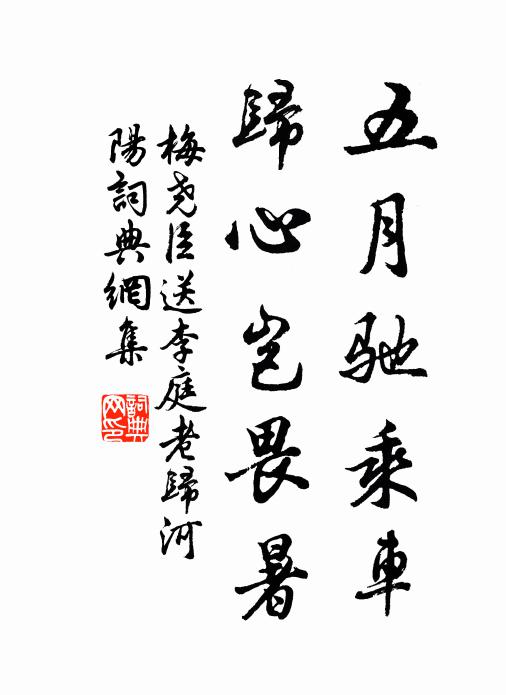 五月馳乘車
歸心豈畏暑
梅尧臣送李庭老歸河
陽詞典網集
詞典
网印